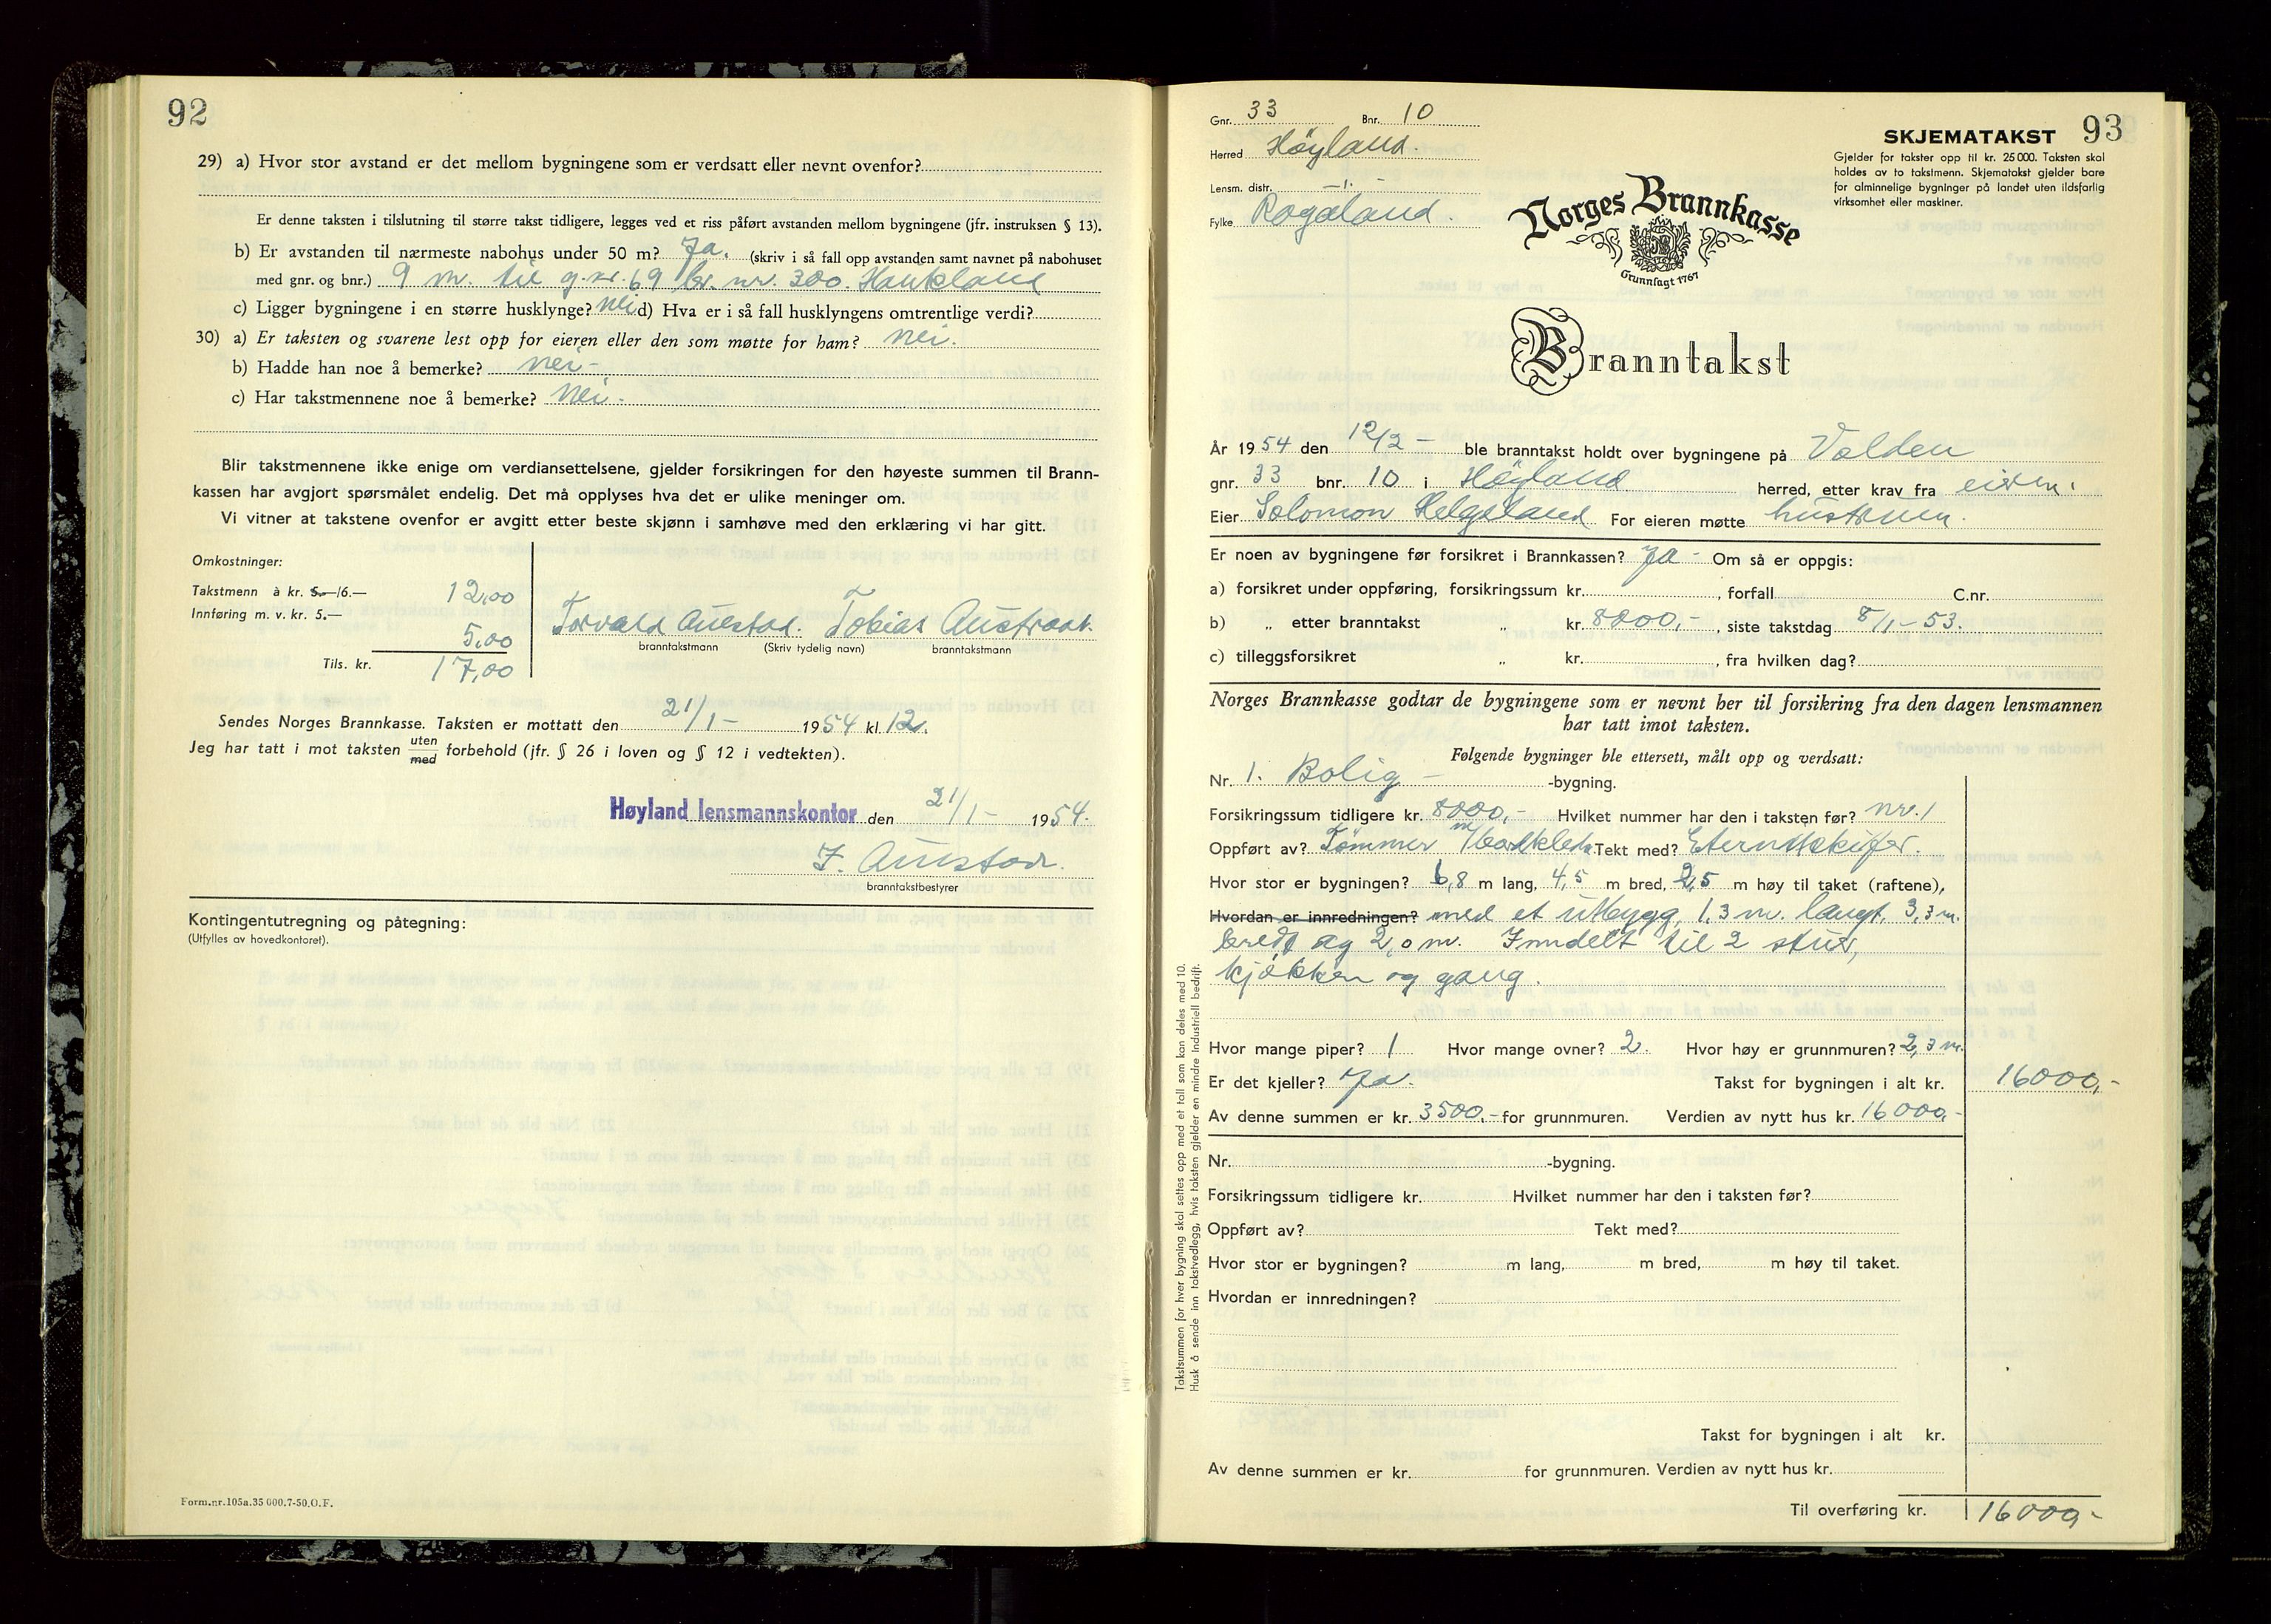 92
29) a) Hvor stor avstand er det mellom bygningene som er verdsatt eller nevnt ovenfor?
Er denne taksten i tilslutning til større takst tidligere, legges ved et riss påført avstanden mellom bygningene (jfr. instruksen § 13).
b) Er avstanden til nærmeste nabohus under 50 m? Ja. (skriv i så fall opp avstanden samt navnet på nabohuset
med gnr. og bnr.) 9 m. til g.nr. 69 br. nr. 300. Haukland
c) Ligger bygningene i en større husklynge? nei d) Hva er i så fall husklyngens omtrentlige verdi?
30) a) Er taksten og svarene lest opp for eieren eller den som møtte for ham? nei.
b) Hadde han noe å bemerke? nei -
c) Har takstmennene noe å bemerke? nei -
Blir takstmennene ikke enige om verdiansettelsene, gjelder forsikringen for den høyeste summen til Brann-
kassen har avgjort spørsmålet endelig. Det må opplyses hva det er ulike meninger om.
Vi vitner at takstene ovenfor er avgitt etter beste skjønn i samhøve med den erklæring vi har gitt.
Omkostninger:
Takstmenn à kr. 5.— /6.— 12,00
Innføring m. v. kr. 5.— 5,00
Tils. kr. 17,00
Torvald Austad. Tobias Austraat.
branntakstmann (Skriv tydelig navn) branntakstmann
Sendes Norges Brannkasse. Taksten er mottatt den 21/1- 1954 kl. 12.
Jeg har tatt i mot taksten uten/med forbehold (jfr. § 26 i loven og § 12 i vedtekten).
Høyland lensmannskontor den 21/1- 1954.
T. Austad.
branntakstbestyrer
Kontingentutregning og påtegning:
(Utfylles av hovedkontoret).
Form.nr.105a.35 000.7-50.O.F.
Gnr. 33 Bnr. 10
SKJEMATAKST 93
Herred Höyland.
Gjelder for takster opp til kr. 25 000. Taksten skal
holdes av to takstmenn. Skjematakst gjelder bare
for alminnelige bygninger på landet uten ildsfarlig
virksomhet eller maskiner.
Lensm. distr. —"—
Fylke Rogaland.
Norges Brannkasse
Grunnlagt 1767
Branntakst
År 1954 den 12/2 - ble branntakst holdt over bygningene på Volden
gnr. 33 bnr. 10 i Höyland herred, etter krav fra eieren.
Eier Solomon Helgeland For eieren møtte hustruen.
Er noen av bygningene før forsikret i Brannkassen? Ja - Om så er oppgis:
a) forsikret under oppføring, forsikringssum kr. , forfall C.nr.
b) „ etter branntakst „ kr. 8000,- , siste takstdag 8/1-53.
c) tilleggsforsikret „ kr. , fra hvilken dag?
Norges Brannkasse godtar de bygningene som er nevnt her til forsikring fra den dagen lensmannen
har tatt imot taksten.
Følgende bygninger ble ettersett, målt opp og verdsatt:
Nr. 1. Bolig - -bygning.
Forsikringssum tidligere kr. 8000,- Hvilket nummer har den i taksten før? nr. 1
Oppført av? Tömmer m/bordkledn. Tekt med? Eternittskifer.
Hvor stor er bygningen? 6,8 m lang, 4,5 m bred, 2,5 m høy til taket (raftene),
Hvordan er innredningen? med et utbygg, 1,3 m. langt, 3,3 m.
bredt og 2,0 m. Inndelt til 2 stuer,
kjøkken og gang.
Hvor mange piper? 1 Hvor mange ovner? 2. Hvor høy er grunnmuren? 2,3 m.
Er det kjeller? Ja. Takst for bygningen i alt kr. 16000,-
Av denne summen er kr. 3500,- for grunnmuren. Verdien av nytt hus kr. 16000,-
Nr. -bygning.
Forsikringssum tidligere kr. Hvilket nummer har den i taksten før?
Oppført av? Tekt med?
Hvor stor er bygningen? m lang, m bred, m høy til taket.
Hvordan er innredningen?
Takst for bygningen i alt kr.
Av denne summen er kr. for grunnmuren. Verdien av nytt hus kr.
Til overføring kr. 16000,-
Takstsummen for hver bygning skal settes opp med et tall som kan deles med 10.
Husk å sende inn takstvedlegg, hvis taksten gjelder en mindre industriell bedrift.